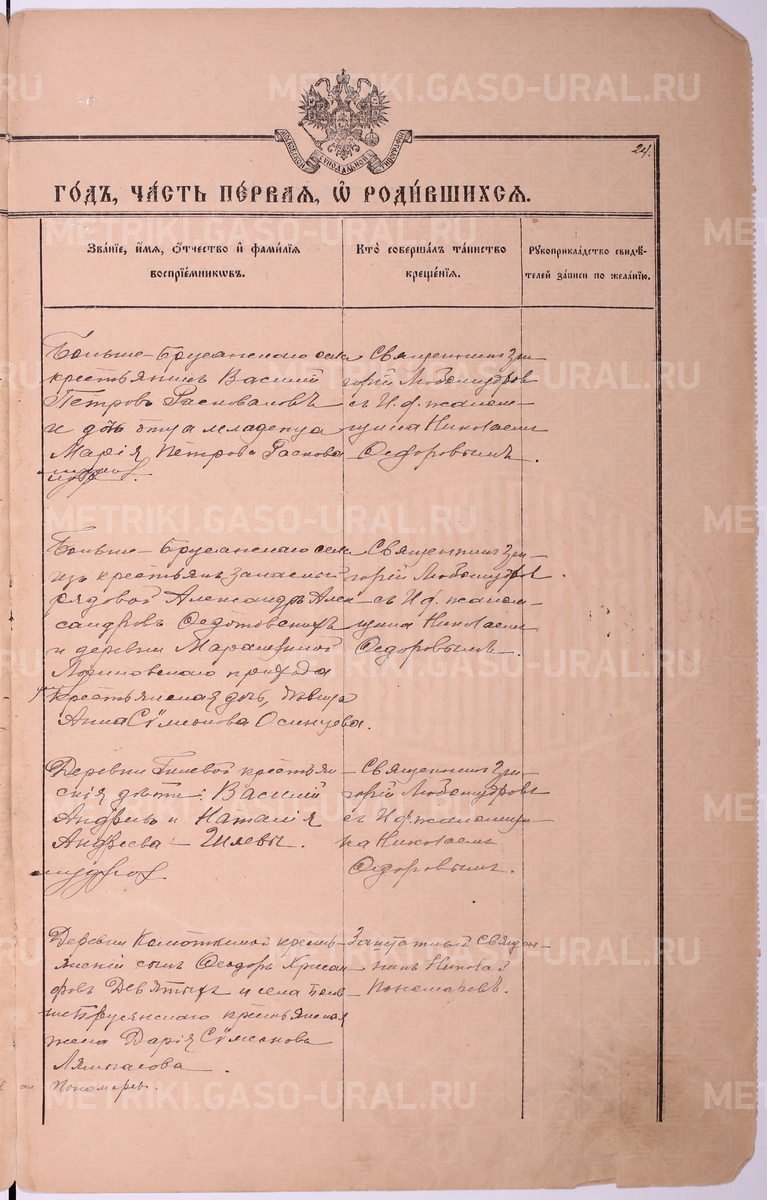 24.
МОСКОВСКОЙ СѴНОДАЛЬНОЙ ТИПОГРАФІИ
ГО́ДЪ, ЧА́СТЬ ПЕ́РВАЯ, Ѡ РОДИ́ВШИХСЯ.
Зва́ніе, и́мя, о́тчество и фами́лія
воспріе́мниковъ.
Кто̀ соверша́лъ та́инство
креще́нія.
Рꙋкоприкла́дство свидѣ́-
телей за́писи по жела́нію.
Больше-Брусянскаго села
крестьянинъ Василій
Петровъ Расковаловъ
и дочь отца младенца
Марія Петрова Раскова
Священникъ Гри-
горій Любомудровъ
съ И. д. псалом-
щика Николаемъ
Ѳедоровымъ.
Больше-Брусянскаго села
изъ крестьянъ запасной
рядовой Александръ Алек-
сандровъ Ѳедотовскихъ
и деревни
Логиновскаго прихода
крестьянская дочь, дѣвица
Анна Сѵмеонова Осинцева.
Священникъ Гри-
горій Любомудровъ
съ И. д. псалом-
щика Николаемъ
Ѳедоровымъ.
Деревни Гилевой крестьян-
скія дѣти: Василій
Андреевъ и Наталія
Андреева Гилевы.
Священникъ Гри-
горій Любомудровъ
съ И. д. псаломщи-
ка Николаемъ
Ѳедоровымъ.
Деревни крестья-
янскій сынъ Ѳеодоръ Хрисан
фовъ Девятыхъ и села Боль-
ше-Брусянскаго крестьянская
жена Дарія Сѵмеонова
Заштатный Священ-
никъ Николай
Пономаревъ.
Пономаревъ.
METRIKI.GASO-URAL.RU